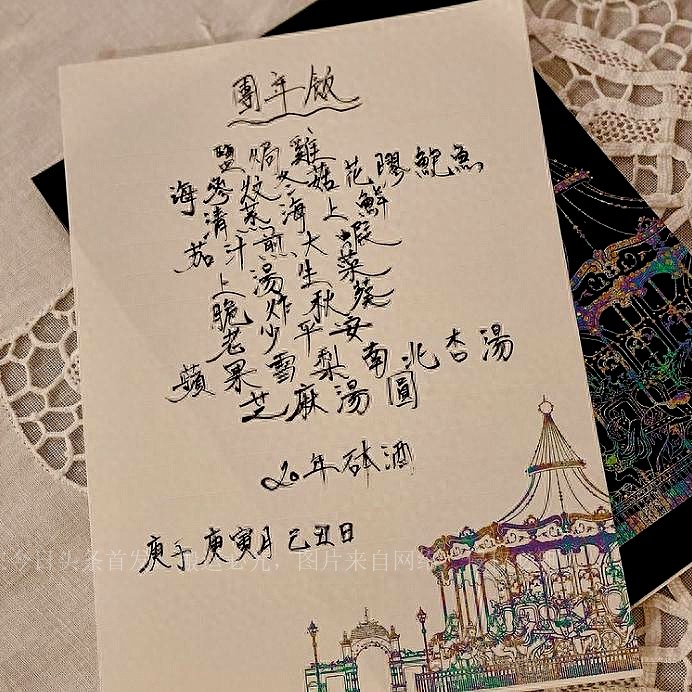 團年飯
鹽焗雞
海參炆冬菇花膠鮑魚
清蒸海上鮮
茄汁煎大蝦
上湯生菜
脆炸秋葵
老少平安
蘋果雪梨南北杏湯
芝麻湯圓
20年砵酒
庚子庚寅月己丑日
今日头条首发
图片来自网络